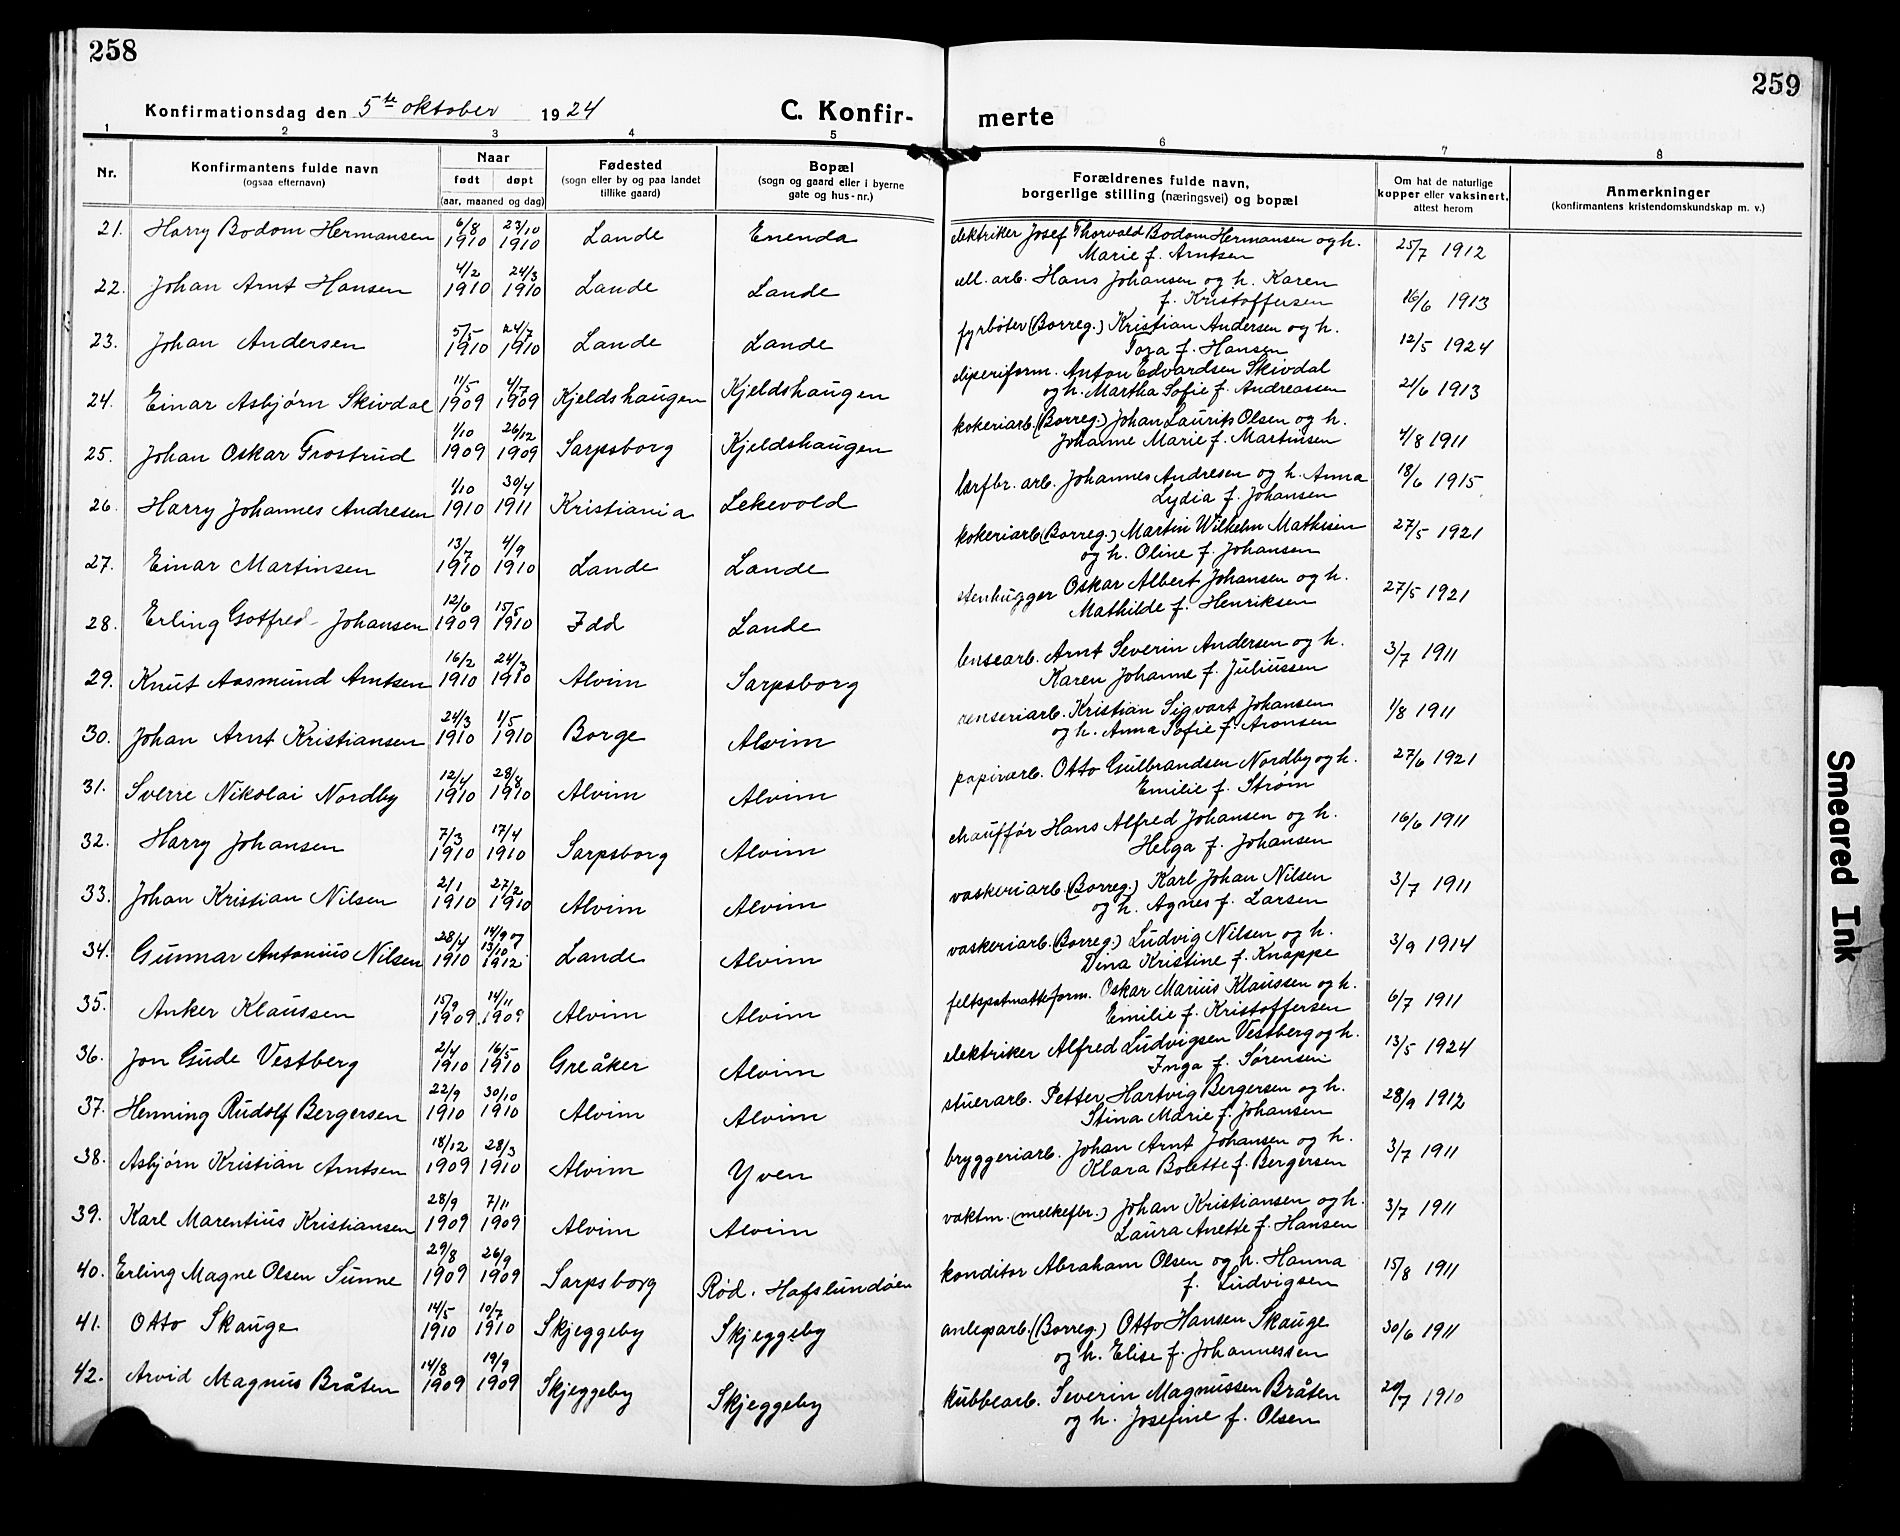 258
259
Konfirmationsdag den 5te oktober 1924
C. Konfir- merte
1 2 3 4 5 6 7 8
Nr.
Konfirmantens fulde navn
(ogsaa efternavn)
Naar
født døpt
(aar, maaned og dag)
Fødested
(sogn eller by og paa landet
tillike gaard)
Bopæl
(sogn og gaard eller i byerne
gate og hus-nr.)
Forældrenes fulde navn,
borgerlige stilling (næringsvei) og bopæl
Om hat de naturlige
kopper eller vaksinert,
attest herom
Anmerkninger
(konfirmantens kristendomskundskap m. v.)
21. Harry Bodom Hermansen 6/8 1910 23/10 1910 Lande Enenda elektriker Josef Thorvald Bodom Hermansen og h. 25/7 1912
Marie f. Arntsen
22. Johan Arnt Hansen 4/2 1910 24/3 1910 Lande Lande cell. arb. Hans Johansen og h. Karen 16/6 1913
f. Kristoffersen
23. Johan Andersen 5/5 1910 24/7 1910 Lande Lande fyrbøter (Borreg.) Kristian Andersen og h. 12/5 1924
Tora f. Hansen
24. Einar Asbjørn Skivdal 11/5 1909 4/7 1909 Kjeldshaugen Kjeldshaugen sliperiform. Anton Edvardsen Skivdal 21/6 1913
og h. Martha Sofie f. Andreassen
25. Johan Oskar Trostrud 1/10 1909 26/12 1909 Sarpsborg Kjeldshaugen kokeriarb. (Borreg.) Johan Laurits Olsen og h. 4/8 1911
Johanne Marie f. Martinsen
26. Harry Johannes Andresen 1/10 1910 30/4 1911 Kristiania Lekevold lærfbr. arb. Johannes Andresen og h. Anna 18/6 1915
Lydia f. Johansen
27. Einar Martinsen 13/7 1910 4/9 1910 Lande Lande kokeriarb (Borreg.) Martin Wilhelm Mathisen 27/5 1921
og h. Oline f. Johansen
28. Erling Gotfred Johansen 12/6 1909 15/5 1910 Idd Lande stenhugger Oskar Albert Johansen og h. 27/5 1921
Mathilde f. Henriksen
29. Knut Aasmund Arntsen 16/2 1910 24/3 1910 Alvim Sarpsborg lensearb. Arnt Severin Andersen og h. 3/7 1911
Karen Johanne f. Juliussen
30. Johan Arnt Kristiansen 24/3 1910 1/5 1910 Borge Alvim renseriarb. Kristian Sigvart Johansen 1/8 1911
og h. Anna Sofie f. Aronsen
31. Sverre Nikolai Nordby 12/4 1910 28/8 1910 Alvim Alvim papirarb. Otto Gulbrandsen Nordby og h. 27/6 1921
Emilie f. Strøm
32. Harry Johansen 7/3 1910 17/4 1910 Sarpsborg Alvim chauffør Hans Alfred Johansen og h. 16/6 1911
Helga f. Johansen
33. Johan Kristian Nilsen 2/1 1910 27/2 1910 Alvim Alvim vaskeriarb. (Borreg.) Karl Johan Nilsen 3/7 1911
og h. Agnes f. Larsen
34. Gunnar Antonius Nilsen 28/4 1910 14/9 og 13/10 1912 Lande Alvim vaskeriarb. (Borreg.) Ludvig Nilsen og h. 3/9 1914
Dina Kristine f. Knappe
35. Anker Klaussen 15/9 1909 14/11 1909 Alvim Alvim feltspatmatteform. Oskar Marius Klaussen og h. 6/7 1911
Emilie f. Kristoffersen
36. Jon Gude Vestberg 2/4 1910 16/5 1910 Greåker Alvim elektriker Alfred Ludvigsen Vestberg og h. 13/5 1924
Inga f. Sørensen
37. Henning Rudolf Bergersen 22/9 1910 30/10 1910 Alvim Alvim stuerarb. Petter Hartvig Bergersen og h. 28/9 1912
Stina Marie f. Johansen
38. Asbjørn Kristian Arntsen 18/12 1909 28/3 1910 Alvim Yven bryggeriarb. Johan Arnt Johansen og h. 3/7 1911
Klara Bolette f. Bergersen
39. Karl Marentius Kristiansen 28/9 1909 7/11 1909 Alvim Alvim vaktm. (melkefbr.) Johan Kristiansen og h. 3/7 1911
Laura Anette f. Hansen
40. Erling Magne Olsen Sunne 29/8 1909 26/9 1909 Sarpsborg Rød. Hafslundsøen konditor Abraham Olsen og h. Hanna 15/8 1911
f. Ludvigsen
41. Otto Skauge 14/5 1910 10/7 1910 Skjeggeby Skjeggeby anlegsarb. (Borreg.) Otto Hansen Skauge 30/6 1911
og h. Elise f. Johannessen
42. Arvid Magnus Bråten 14/8 1909 19/9 1909 Skjeggeby Skjeggeby kubbearb. Severin Magnussen Bråten 20/7 1910
og h. Josefine f. Olsen
Smeared Ink